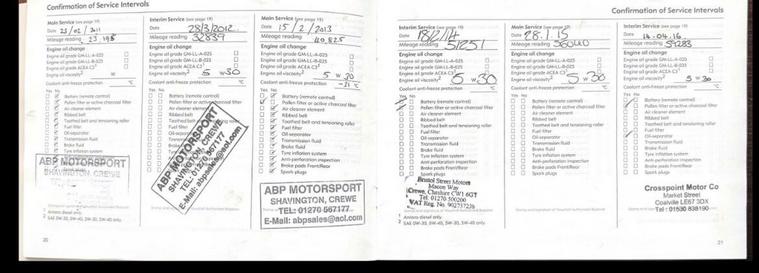 Confirmation of Service Intervals
Main Service (see page 19)
Date 23/02/2011
Mileage reading 23,198
Engine oil change
Engine oil grade GM-LL-A-025
Engine oil grade GM-LL-B-025
Engine oil grade ACEA C3¹
Engine oil viscosity² W
Coolant anti-freeze protection °C
Yes No
Battery (remote control)
Pollen filter or active charcoal filter
Air cleaner element
Ribbed belt
Toothed belt and tensioning roller
Fuel filter
Oil-separator
Transmission fluid
Brake fluid
Tyre inflation system
ABP MOTORSPORT
SHAVINGTON, CREWE
Interim Service (see page 19)
Date 28/3/2012
Mileage reading 32839
Engine oil change
Engine oil grade GM-LL-A-025
Engine oil grade GM-LL-B-025
Engine oil grade ACEA C3¹
Engine oil viscosity² 5 W 30
Coolant anti-freeze protection °C
Yes No
Battery (remote control)
Pollen filter or active charcoal filter
Air cleaner element
ABP MOTORSPORT
SHAVINGTON, CREWE
TEL: 01270 567177
E-Mail: abpsales@aol.com
Main Service (see page 19)
Date 15/2/2013
Mileage reading 40,825
Engine oil change
Engine oil grade GM-LL-A-025
Engine oil grade GM-LL-B-025
Engine oil grade ACEA C3¹
Engine oil viscosity² 5 W 30
Coolant anti-freeze protection -21 °C
Yes No
Battery (remote control)
Pollen filter or active charcoal filter
Air cleaner element
Ribbed belt
Toothed belt and tensioning roller
Fuel filter
Oil-separator
Transmission fluid
Brake fluid
Tyre inflation system
Anti-perforation inspection
Brake pads Front/Rear
Spark plugs
ABP MOTORSPORT
SHAVINGTON, CREWE
TEL: 01270 567177
E-Mail: abpsales@aol.com
¹ Antara diesel only.
² SAE 0W-30, 0W-40, 5W-30, 5W-40 only.
20
Confirmation of Service Intervals
Interim Service (see page 19)
Date 18/2/14
Mileage reading 51251
Engine oil change
Engine oil grade GM-LL-A-025
Engine oil grade GM-LL-B-025
Engine oil grade ACEA C3¹
Engine oil viscosity² 5 W 30
Coolant anti-freeze protection °C
Yes No
Battery (remote control)
Pollen filter or active charcoal filter
Air cleaner element
Ribbed belt
Toothed belt and tensioning roller
Fuel filter
Oil-separator
Transmission fluid
Brake fluid
Tyre inflation system
Anti-perforation inspection
Brake pads Front/Rear
Spark plugs
Bristol Street Motors
Macon Way
Crewe, Cheshire CW1 6GT
Tel: 01270 500200
VAT Reg. No. 902737238
¹ Antara diesel only.
² SAE 0W-30, 0W-40, 5W-30, 5W-40 only.
Main Service (see page 19)
Date 28.1.15
Mileage reading 56040
Engine oil change
Engine oil grade GM-LL-A-025
Engine oil grade GM-LL-B-025
Engine oil grade ACEA C3¹
Engine oil viscosity² 5 W 30
Coolant anti-freeze protection °C
Yes No
Battery (remote control)
Pollen filter or active charcoal filter
Air cleaner element
Ribbed belt
Toothed belt and tensioning roller
Fuel filter
Oil-separator
Transmission fluid
Brake fluid
Tyre inflation system
Anti-perforation inspection
Brake pads Front/Rear
Spark plugs
Interim Service (see page 19)
Date 14.04.16
Mileage reading 59283
Engine oil change
Engine oil grade GM-LL-A-025
Engine oil grade GM-LL-B-025
Engine oil grade ACEA C3¹
Engine oil viscosity² 5 W 30
Coolant anti-freeze protection °C
Yes No
Battery (remote control)
Pollen filter or active charcoal filter
Air cleaner element
Ribbed belt
Toothed belt and tensioning roller
Fuel filter
Oil-separator
Transmission fluid
Brake fluid
Tyre inflation system
Anti-perforation inspection
Brake pads Front/Rear
Spark plugs
Crosspoint Motor Co
Market Street
Coalville LE67 3DX
Tel: 01530 838190
21